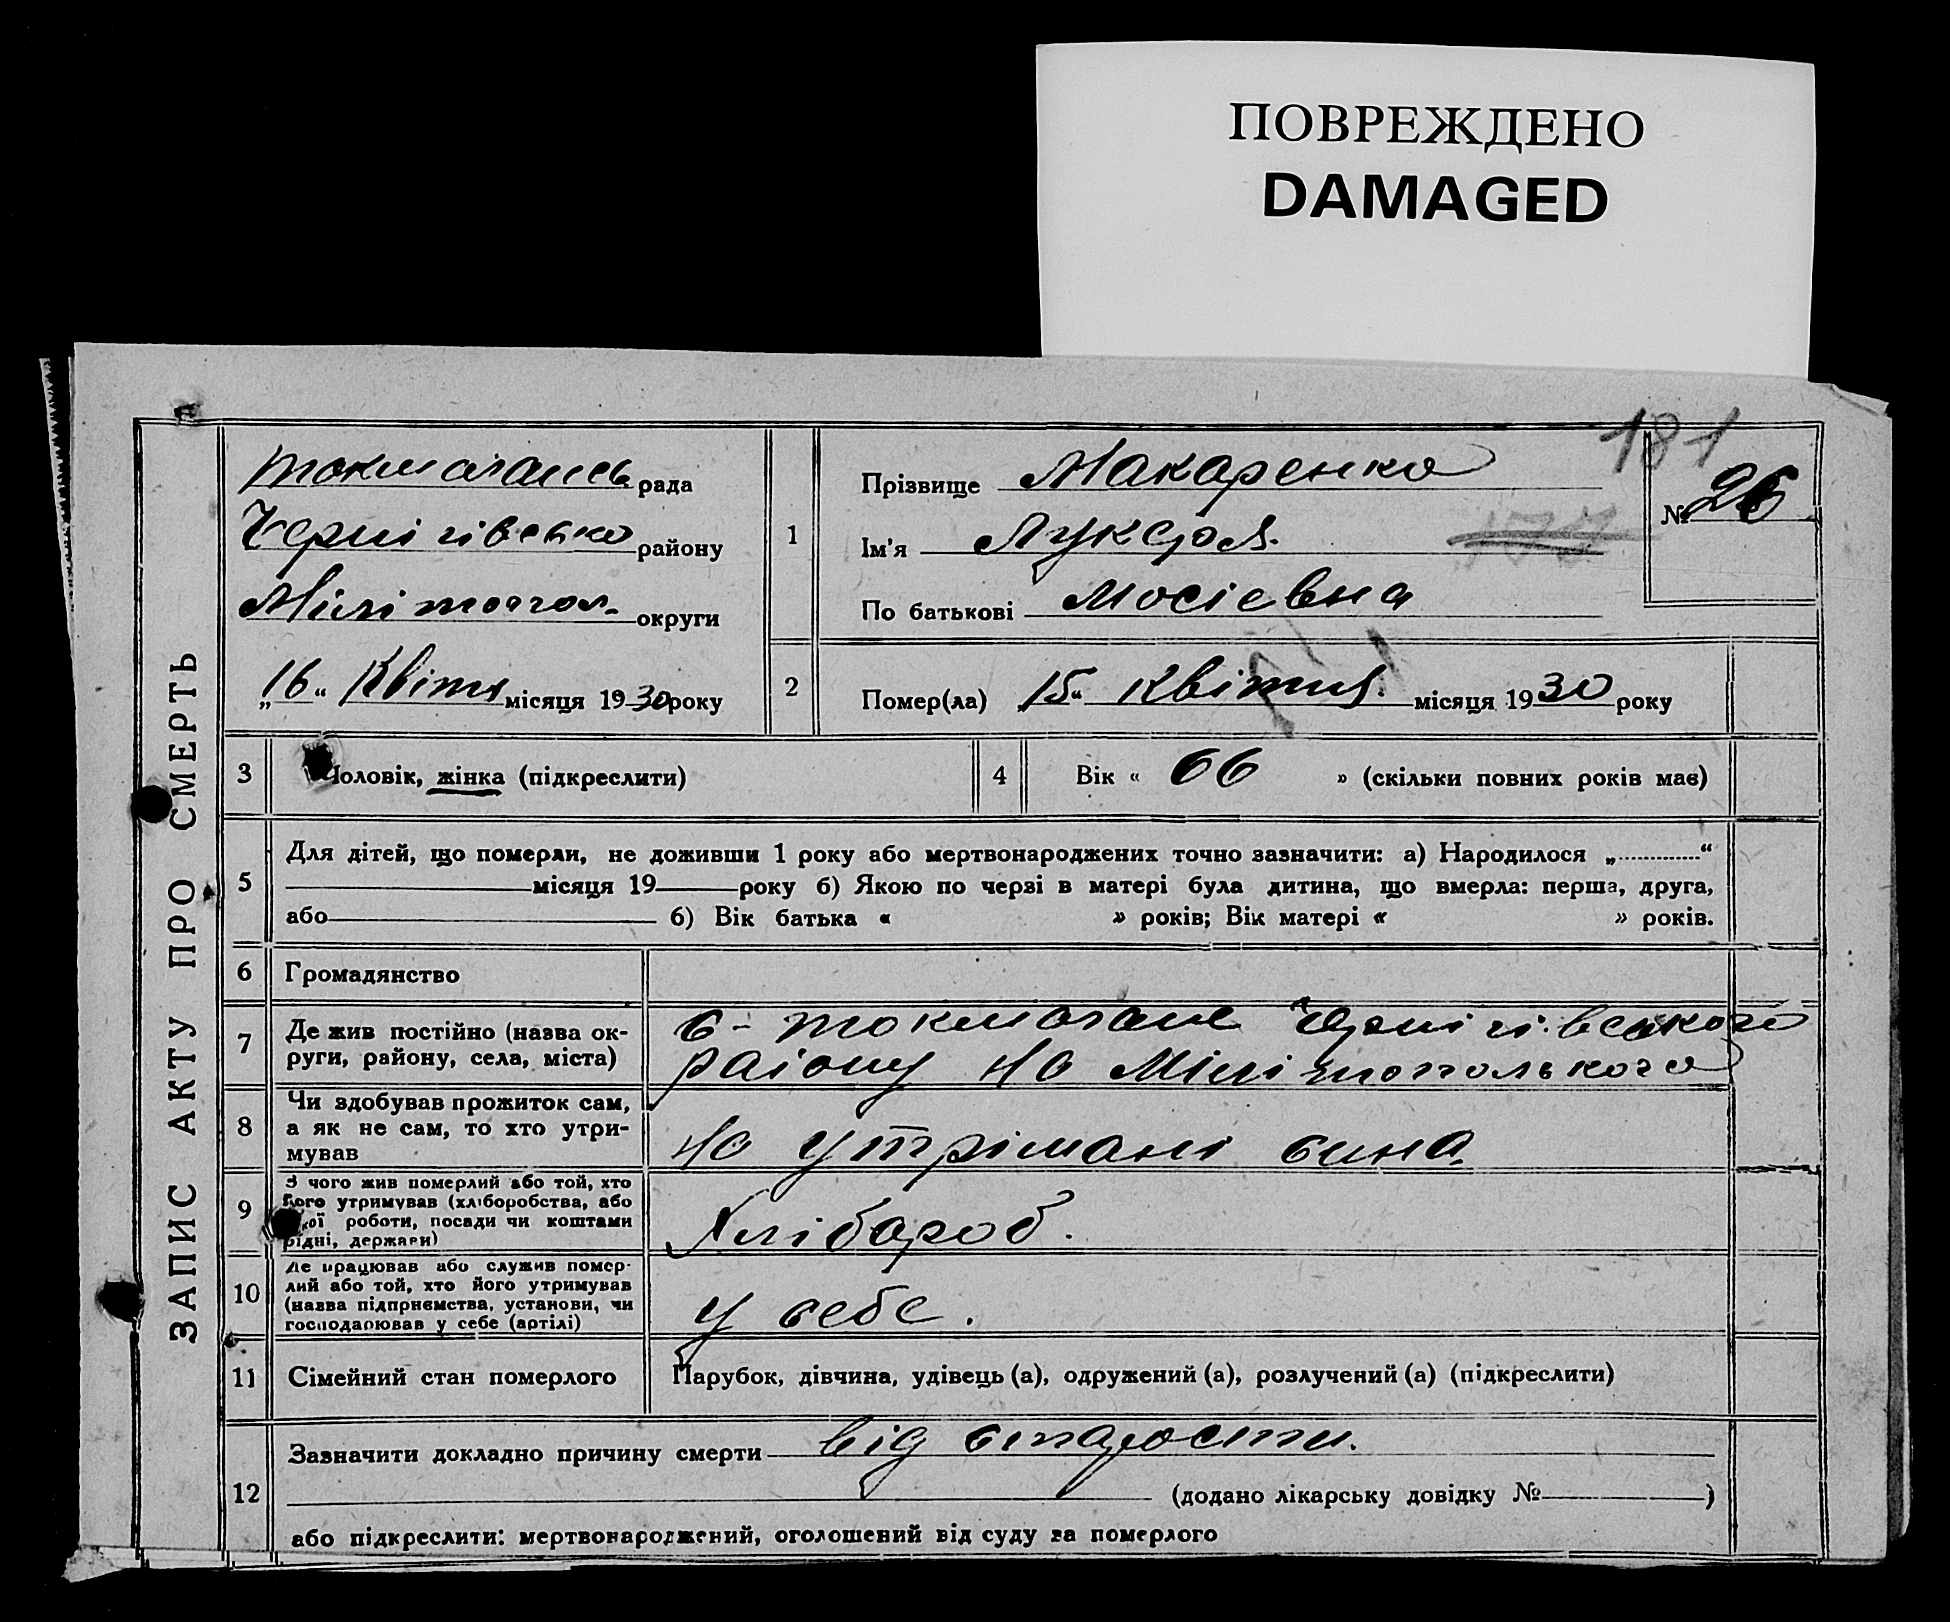 ПОВРЕЖДЕНО
DAMAGED
181
ЗАПИС АКТУ ПРО СМЕРТЬ
рада
Чернігівсько району
Мілітопол. округи
„16“ Квітня місяця 1930 року
1
Прізвище Макаренко
Ім'я Лукеря.
По батькові Мосієвна
№ 26
2
Помер(ла) „15“ Квітня. місяця 1930 року
3 Чоловік, жінка (підкреслити)
4 Вік « 66 » (скільки повних років має)
5
Для дітей, що померли, не доживши 1 року або мертвонароджених точно зазначити: а) Народилося „............“
місяця 19 року б) Якою по черзі в матері була дитина, що вмерла: перша, друга,
або б) Вік батька « » років; Вік матері « » років.
6 Громадянство
7
Де жив постійно (назва ок-
руги, району, села, міста)
с- Чернігівського
раіону на Мілітопольского
8
Чи здобував прожиток сам,
а як не сам, то хто утри-
мував
на утрімані сина.
9
З чого жив померлий або той, хто
його утримував (хліборобства, або
якої роботи, посади чи коштами
рідні, держави)
Хлібороб.
10
Де працював або служив помер-
лий або той, хто його утримував
(назва підприємства, установи, чи
господарював у себе (артілі)
у себе.
11 Сімейний стан померлого
Парубок, дівчина, удівець (а), одружений (а), розлучений (а) (підкреслити)
12
Зазначити докладно причину смерти від старости.
(додано лікарську довідку № )
або підкреслити: мертвонароджений, оголошений від суду за померлого